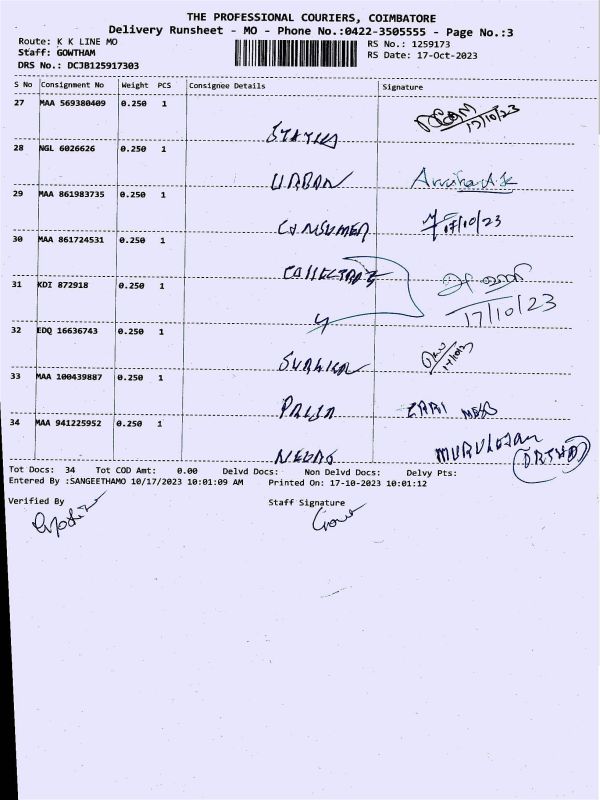 THE PROFESSIONAL COURIERS, COIMBATORE
Delivery Runsheet - MO - Phone No.:0422-3505555 - Page No.:3
Route: K K LINE MO
RS No.: 1259173
Staff: GOWTHAM
RS Date: 17-Oct-2023
DRS No.: DCJB125917303
S No Consignment No Weight PCS Consignee Details Signature
27 MAA 569380409 0.250 1
17/10/23
28 NGL 6026626 0.250 1
URBAN
29 MAA 861983735 0.250 1
CONSUMER 17/10/23
30 MAA 861724531 0.250 1
31 KDI 872918 0.250 1
17/10/23
32 EDQ 16636743 0.250 1
33 MAA 100439887 0.250 1
34 MAA 941225952 0.250 1
Tot Docs: 34 Tot COD Amt: 0.00 Delvd Docs: Non Delvd Docs: Delvy Pts:
Entered By :SANGEETHAMO 10/17/2023 10:01:09 AM Printed On: 17-10-2023 10:01:12
Verified By Staff Signature